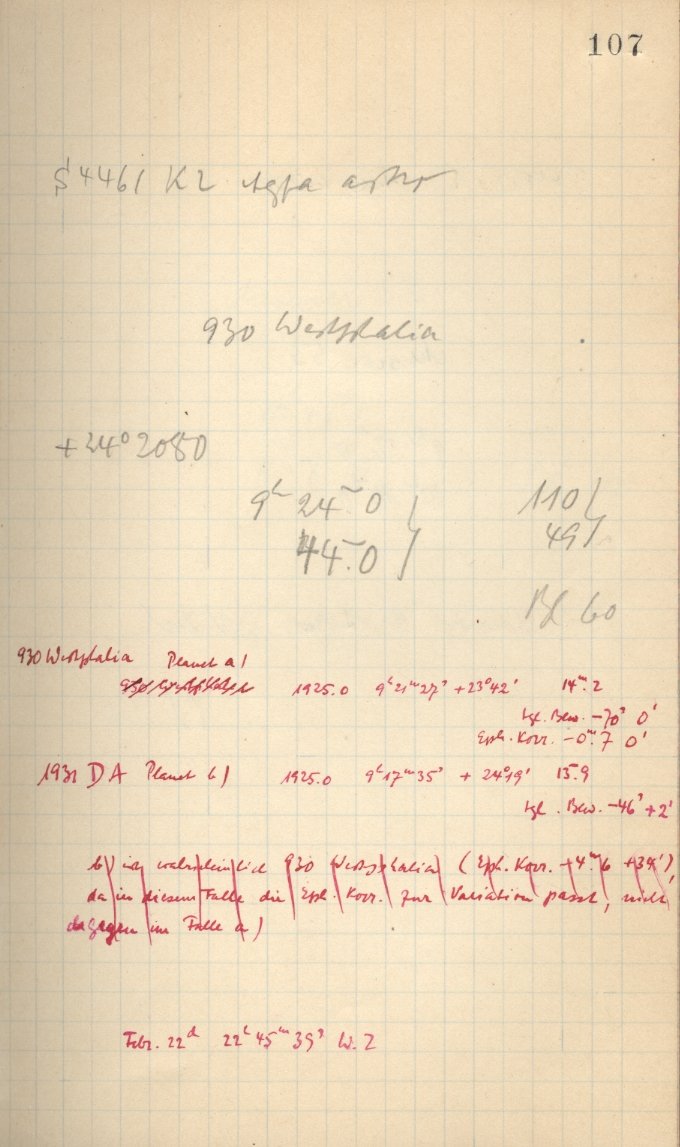 107
S 4461 K2 Agfa astro
930 Westphalia
+24° 2080
9h 24m.0 } 110 }
44m.0 49
Bl 60
930 Westphalia Planet a)
930 Westphalia 1925.0 9h 21m 27s +23° 42' 14m.2
tgl. Bew. -70s 0'
Eph. Korr. -0m.7 0'
1931 DA Planet b) 1925.0 9h 17m 35s + 24° 19' 15.9
tgl. Bew. -46s +2'
b) ist wahrscheinlich 930 Westphalia (Eph. Korr. -4m.6 +34')
da in diesem Falle die Eph. Korr. zur Variation passt, nicht
dagegen im Falle a)
Febr. 22d 22h 45m 39s W.Z